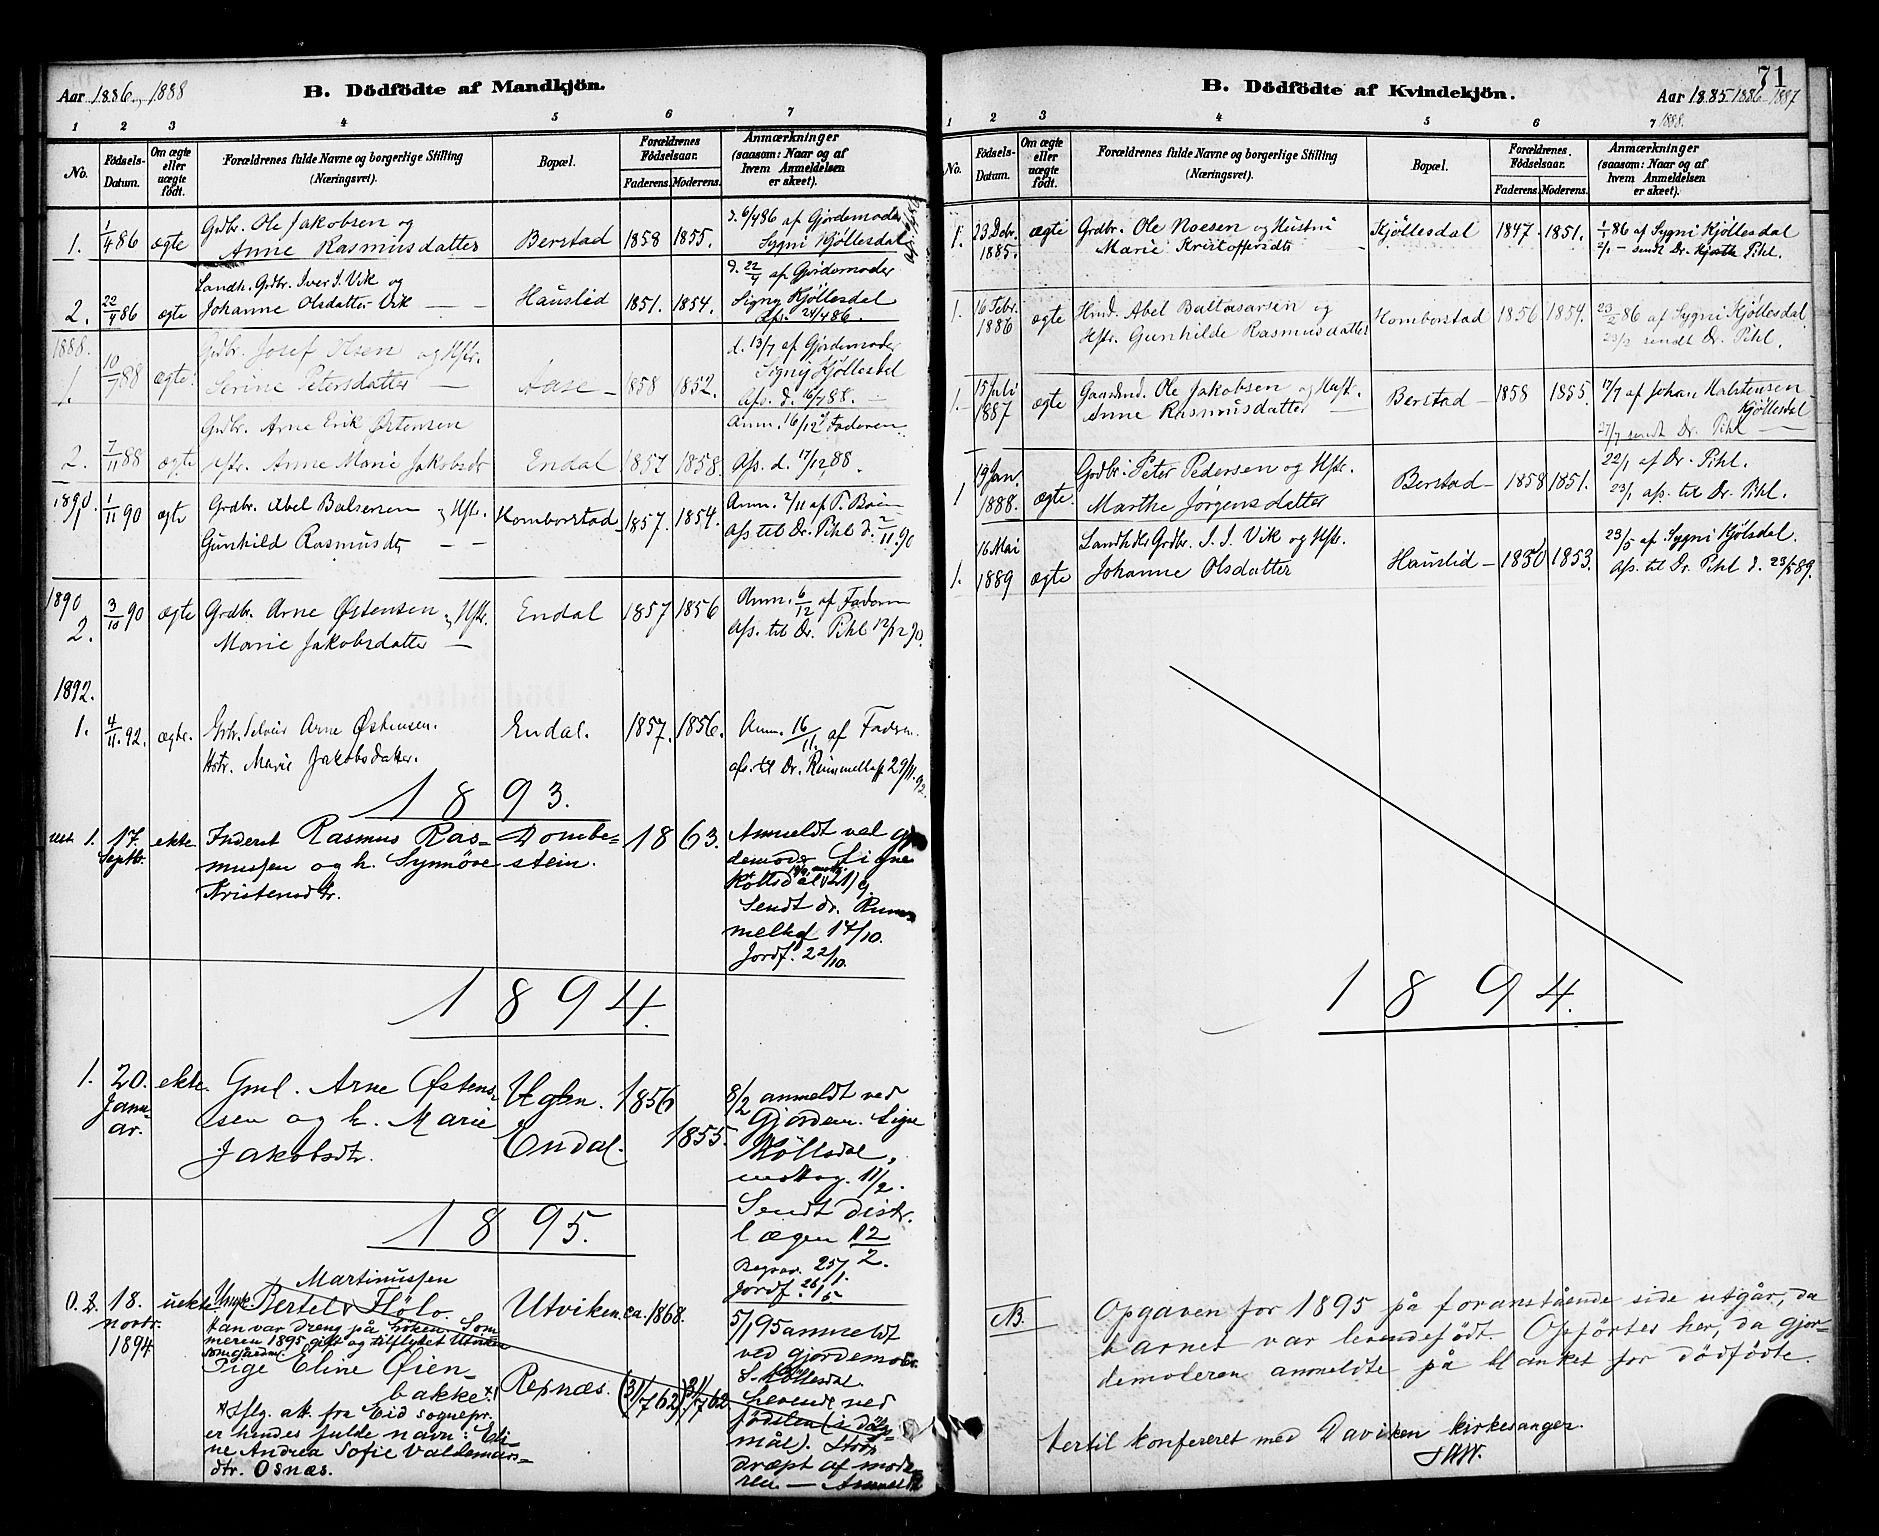 Aar 1886 - 1888
B. Dödfödte af Mandkjön.
1 2 3 4 5 6 7
No.
Födsels-Datum.
Om ægte eller uægte födt.
Forældrenes fulde Navne og borgerlige Stilling (Næringsvei).
Bopæl.
Forældrenes Födselsaar.
Faderens. Moderens.
Anmærkninger (saasom: Naar og af hvem Anmeldelsen er skeet).
1. 1/4 86 ægte Grdbr. Ole Jakobsen og
Anne Rasmusdatter Berstad 1858 1855.
d. 6/4 86 af Gjordemoder
Sygni Kjöllesdal
2. 22/4 86 ægte Landh. Grdbr. Iver I. Vik og
Johanne Olsdatter Vik Hauslid 1851. 1854.
d. 22/4 af Gjordemoder
Signy Kjöllesdal
Afs. 24/4 86.
1888.
1. 10/7 88 ægte. Grdbr. Josef Olsen og Hstr.
Serine Petersdatter Aase 1858 1852.
d. 13/7 af Gjordemoder
Signij Kjöllesdal
Afs. d. 16/7 88.
2. 7/11 88 ægte Grdbr. Arne Erik Östensen
Hstr. Anne Marie Jakobsdr Endal 1857 1858.
Anm. 16/12 af Faderen.
Afs. d. 17/12 88.
1890.
1 1/11 90 ægte Grdbr. Abel Balsersen og Hstr.
Gunhild Rasmusdtr Homborstad 1857. 1854.
Anm. 2/11 af P. Böen
Afs til Dr. Pihl d. 2/11 90
1890
2. 3/10 90 ægte Grdbr. Arne Östensen og Hstr.
Marie Jakobsdatter Endal 1857 1856
Anm. 6/12 af Faderen
Afs. til Dr. Pihl 12/12 90.
1892.
1. 4/11. 92. ægte. Grbr. Selveier Arne Østensen.
Hstr. Marie Jakobsdatter. Endal. 1857. 1856.
Anm. 16/11. af Faderen
afs. til Dr. Rummelhoff 29/11. 92.
1893.
1. 17. Septbr. ekte Inderst Rasmus Ras-
mussen og h. Synnöve
Kristensdtr. Dombe-
stein. 1863.
Anmeldt ved gjor-
demoder Signe
Köllsdal
Sendt dr. Rum-
melhof 17/10.
Jordf. 22/10.
1894.
1. 20. Janu-
ar. ekte. Gml. Arne Østens-
sen og h. Marie
Jakobsdtr. Uglen.
Endal. 1856
1855.
8/2 anmeldt ved
Gjordem. Signe
Köllsdal,
mottog. 11/2.
Sendt distr.
lægen 12/2.
Begrav. 25/1.
Jordf. 26/5.
1895.
0. 2. 18.
novbr.
1894 uekte Martinussen
Ungk. Bertel Flölo Utviken. ca. 1868.
Han var dreng på Hoken. Som-
meren 1895 gift og tilflyttet Utviken
som gaardm.
Pige Eline Øien-
bakke *) Repnæs. (31/7 62) 31/7 62
*) Iflg. att. fra Eid sognepr.
er hendes fulde navn: Eli-
ne Andrea Sofie Valdemars-
dtr. Osnæs.
5/1 95 anmeldt
ved gjordemodr.
S. Köllesdal.
Levende ved
födselen (i Döls-
mål). Strax
dræpt af mode-
ren. — Anmeldt
71
B. Dödfödte af Kvindekjön.
Aar 1885 1886 - 1887
1888.
1 2 3 4 5 6 7
No.
Födsels-Datum.
Om ægte eller uægte födt.
Forældrenes fulde Navne og borgerlige Stilling (Næringsvei).
Bopæl.
Forældrenes Födselsaar.
Faderens. Moderens.
Anmærkninger (saasom: Naar og af hvem Anmeldelsen er skeet).
1. 23 Debr.
1885. ægte Grdbr. Ole Noesen og Hustru
Marie Kristoffersdtr Kjöllesdal 1847 1851.
1/1 86 af Sygni Kjöllesdal
2/1 — sendt Dr. Pihl.
1. 16 Febr.
1886 ægte Hmd. Abel Baltasarsen og
Hstr. Gunhilde Rasmusdatter Homborstad 1856 1854.
23/2 86 af Sygni Kjöllesdal.
23/2 sendt Dr. Pihl.
1. 15 Juli
1887 ægte Gaardmd. Ole Jakobsen og Hust.
Anne Rasmusdatter Berstad 1858 1855.
17/7 af Johan Kjöllesdal
27/7 sendt Dr. Pihl
1 19 Jan.
1888. ægte. Grdbr. Peter Pedersen og Hstr.
Marthe Jörgensdatter Berstad 1858 1851.
22/1 af Dr. Pihl.
23/1 afs. til Dr. Pihl.
1. 16 Mai
1889 ægte Landhdlr Grdbr. I. I. Vik og Hstr.
Johanne Olsdatter Hauslid 1850 1853.
23/5 af Sygni Kjölsdal.
Afs. til Dr. Pihl d. 23/5 89.
1894.
NB. Opgaven for 1895 på foranstående side utgår, da
barnet var levendefödt. Opförtes her, da gjor-
demoderen anmeldte på blanket for dödfödte.
Hertil konfereret med Daviken kirkesanger.